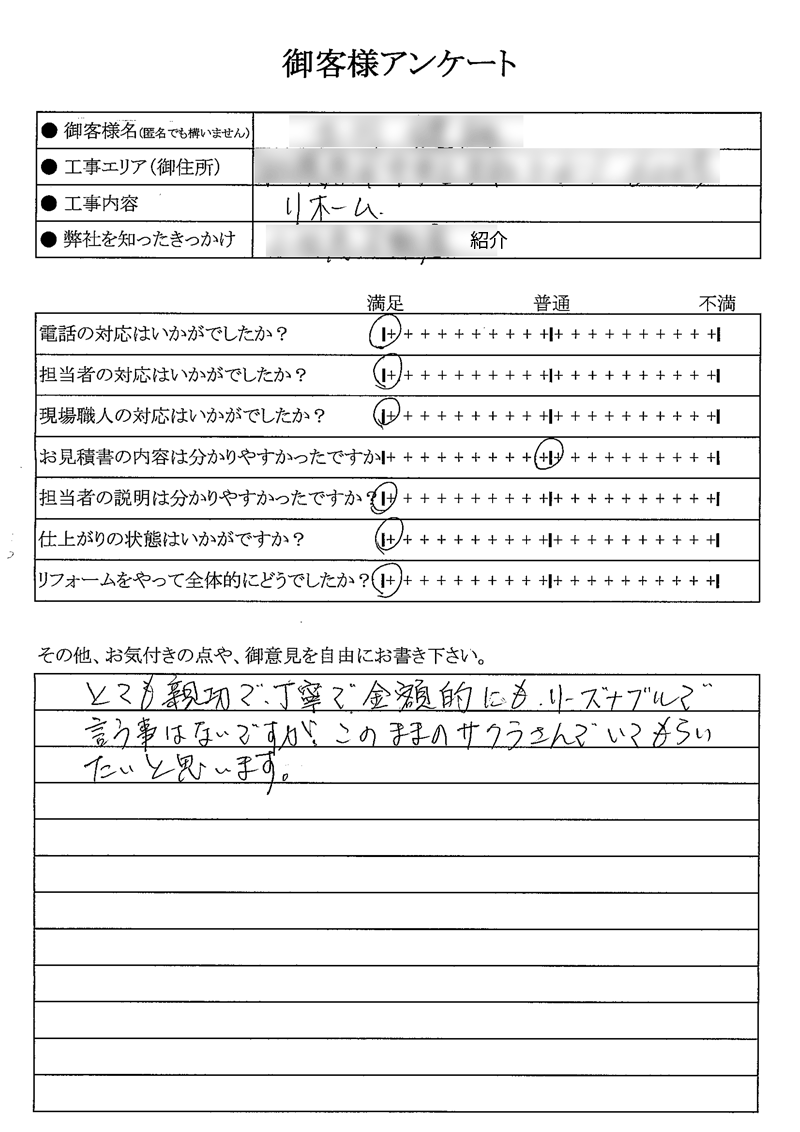 御客様アンケート
● 御客様名(匿名でも構いません)
● 工事エリア(御住所)
● 工事内容 リホーム.
● 弊社を知ったきっかけ 紹介
満足 普通 不満
電話の対応はいかがでしたか？
担当者の対応はいかがでしたか？
現場職人の対応はいかがでしたか？
お見積書の内容は分かりやすかったですか
担当者の説明は分かりやすかったですか？
仕上がりの状態はいかがですか？
リフォームをやって全体的にどうでしたか？
その他、お気付きの点や、御意見を自由にお書き下さい。
とても親切で、丁寧で金額的にも、リーズナブルで
言う事はないですが、このままのサクラさんでいてもらい
たいと思います。